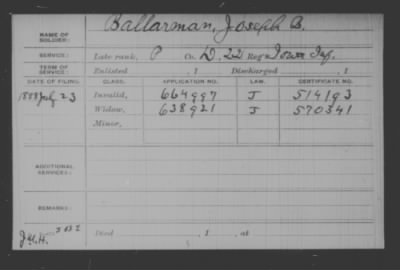 NAME OF SOLDIER: Ballarman, Joseph B.
SERVICE: Late rank, P Co. D, 22 Reg't Iowa Inf.
TERM OF SERVICE: Enlisted , 1 Discharged , 1
DATE OF FILING. CLASS. APPLICATION NO. LAW. CERTIFICATE NO.
1888 July 23 Invalid, 664997 J 514193
Widow, 638921 J 570341
Minor,
ADDITIONAL SERVICES:
REMARKS:
Died , 1 , at